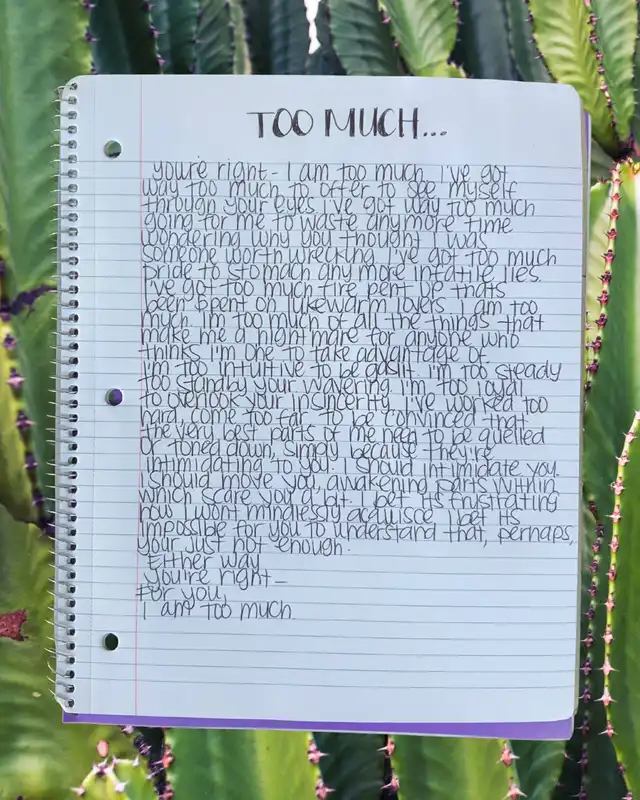 TOO MUCH...
you're right - I am too much. I've got
way too much to offer to see myself
through your eyes i've got way too much
going for me to waste anymore time
wondering why you thought I was
someone worth wrecking I've got too much
pride to stomach any more infatile lies.
I've got too much fire pent up thats
been spent on lukewarm lovers I am too
much im too much of all the things that
make me a nightmare for anyone who
thinks I'm one to take advantage of.
I'm too intuitive to be gaslit. I'm too steady
too standby your wavering I'm too loyal
to overlook your insincerity I've worked too
hard come too far to be convinced that
the very best parts of me need to be quelled
or toned down, simply because they're
intimidating to you. I should intimidate you.
I should move you, awakening parts within
which scare you a bit. I bet its frustrating
how I wont mindlessly acquisce I bet its
impossible for you to understand that, perhaps,
your just not enough.
Either way
you're right—
For you,
I am too much.